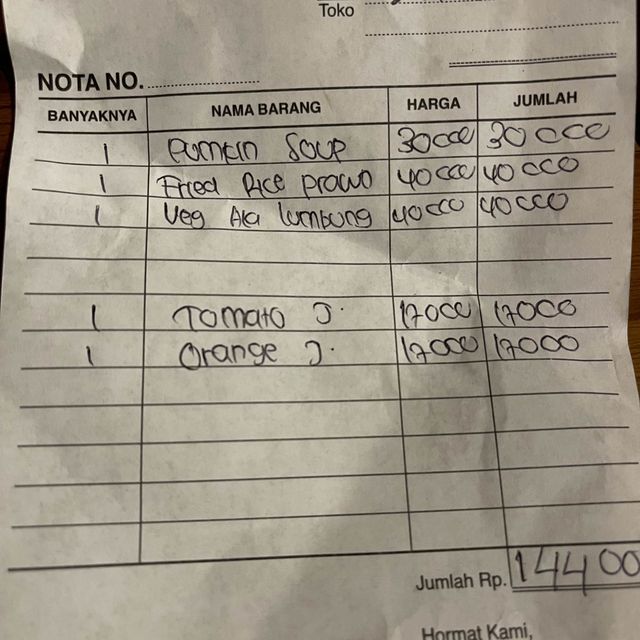 Toko
NOTA NO.
BANYAKNYA NAMA BARANG HARGA JUMLAH
1 Pumcin Soup 30000 30000
1 Fried Rice prawn 40000 40000
1 Veg Ala lumbung 40000 40000
1 Tomato J. 17000 17000
1 Orange J. 17000 17000
Jumlah Rp. 14400
Hormat Kami,